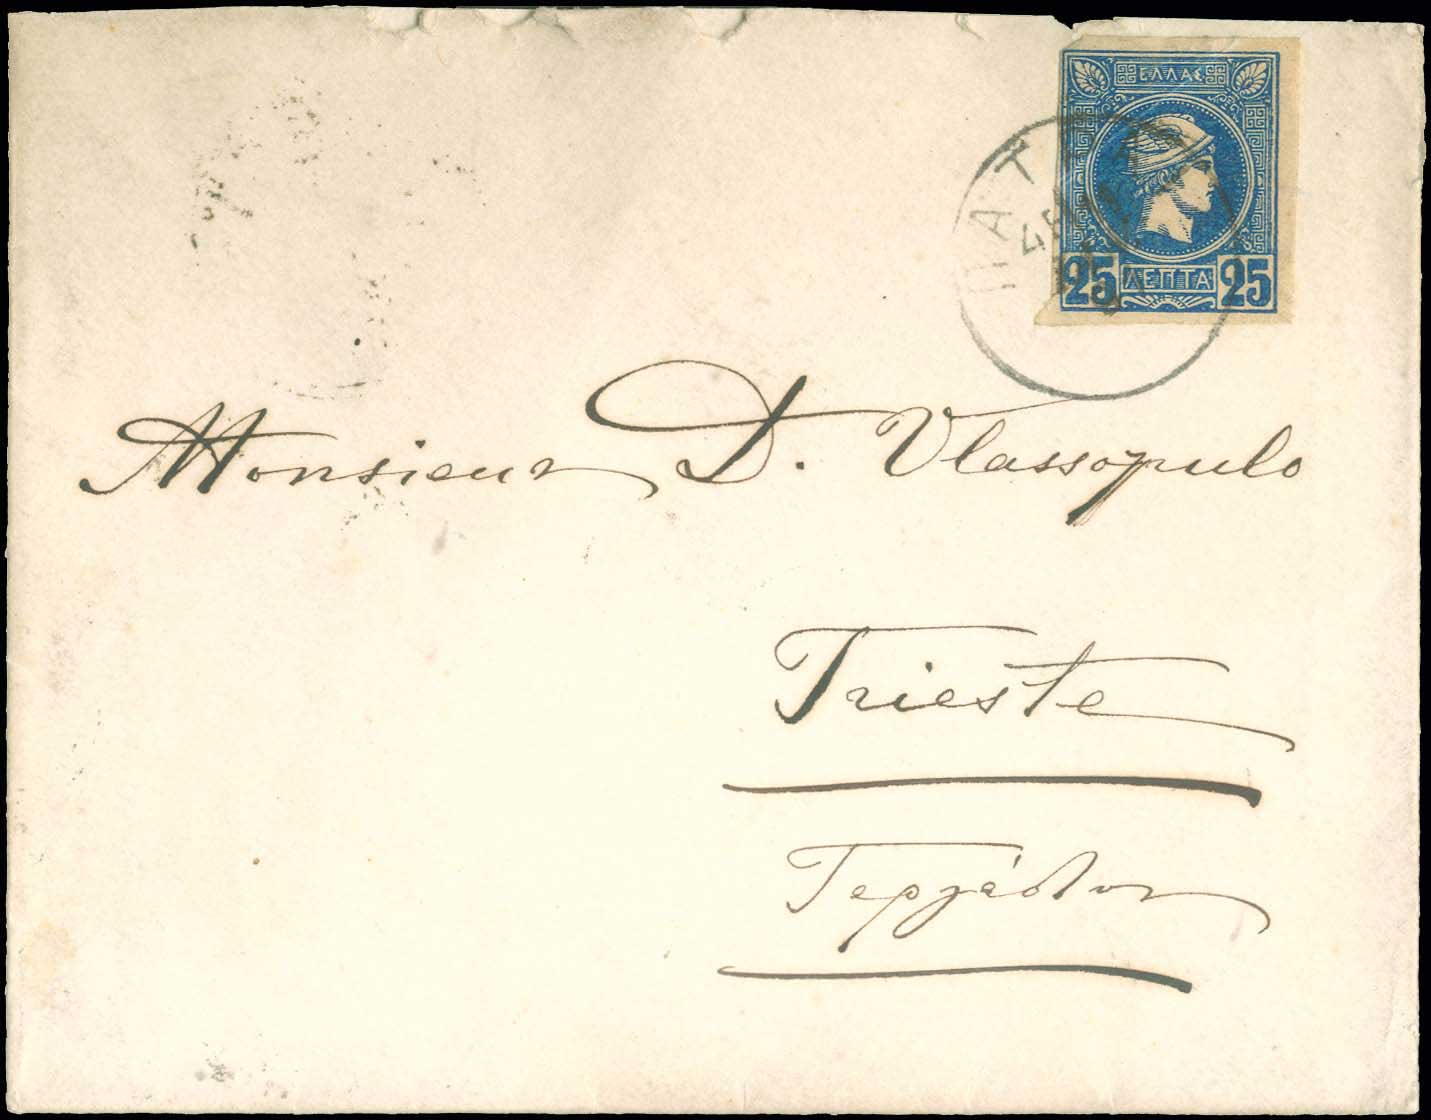 ΕΛΛΑΣ
ΠΑΤΡΑ
25 ΛΕΠΤΑ 25
Monsieur D. Vlassopulo
Trieste
Τεργέστην